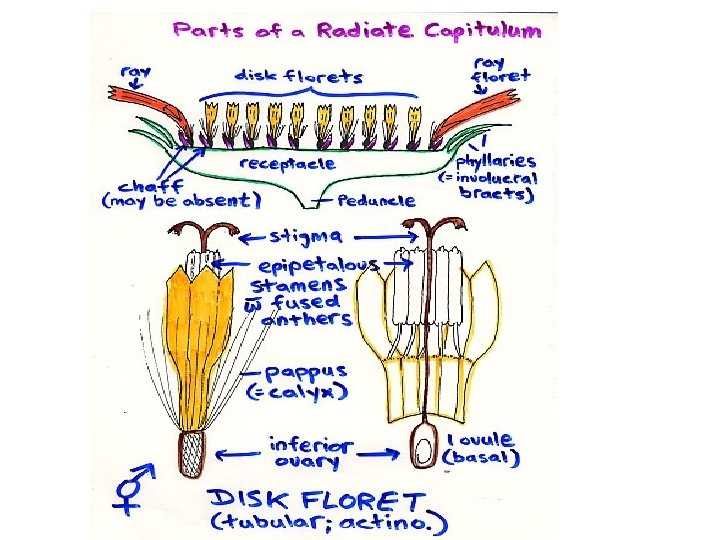 Parts of a Radiate Capitulum
ray
disk florets
ray
floret
receptacle
phyllaries
(= involucral
bracts)
chaff
(may be absent)
Peduncle
stigma
epipetalous
stamens
w̄ fused
anthers
pappus
(= calyx)
inferior
ovary
1 ovule
(basal)
DISK FLORET
(tubular; actino.)